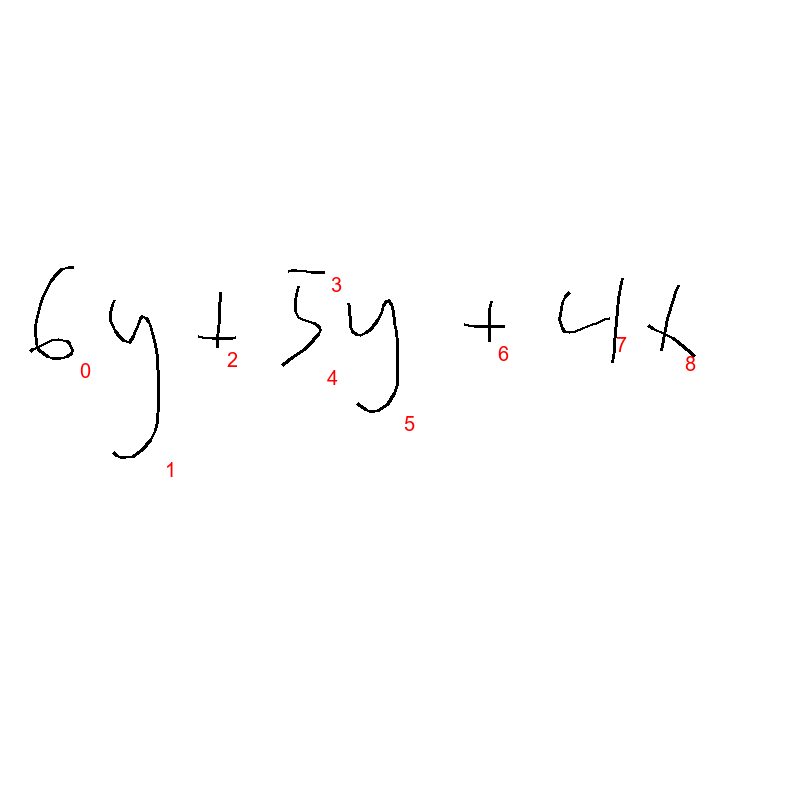 6y + 5y + 4x
0 1 2 3 4 5 6 7 8